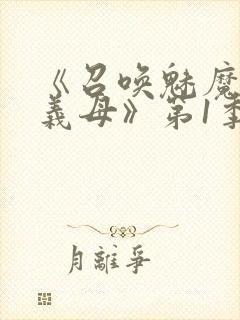 《召唤魅魔
義母》第1季
月離爭